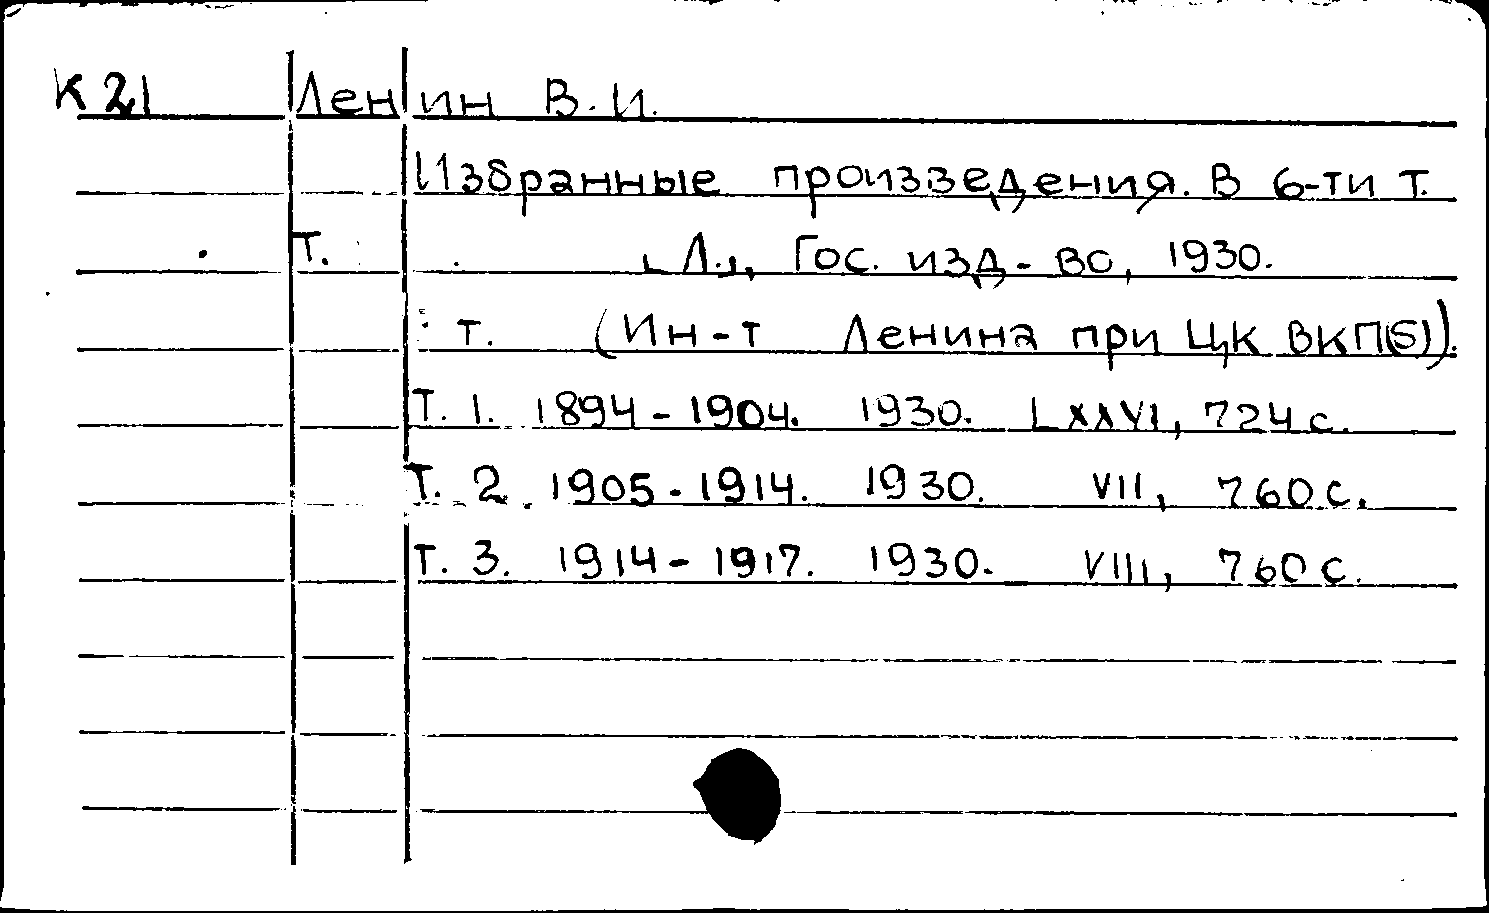 К 21 Ленин В. И.
Избранные произведения. В 6-ти т.
Т. Л., Гос. изд-во, 1930.
т. (Ин-т Ленина при ЦК ВКП(б)).
Т. 1. 1894-1904. 1930. LXXVI, 724 с.
Т. 2. 1905-1914. 1930. VII, 760 с.
Т. 3. 1914-1917. 1930. VIII, 760 с.